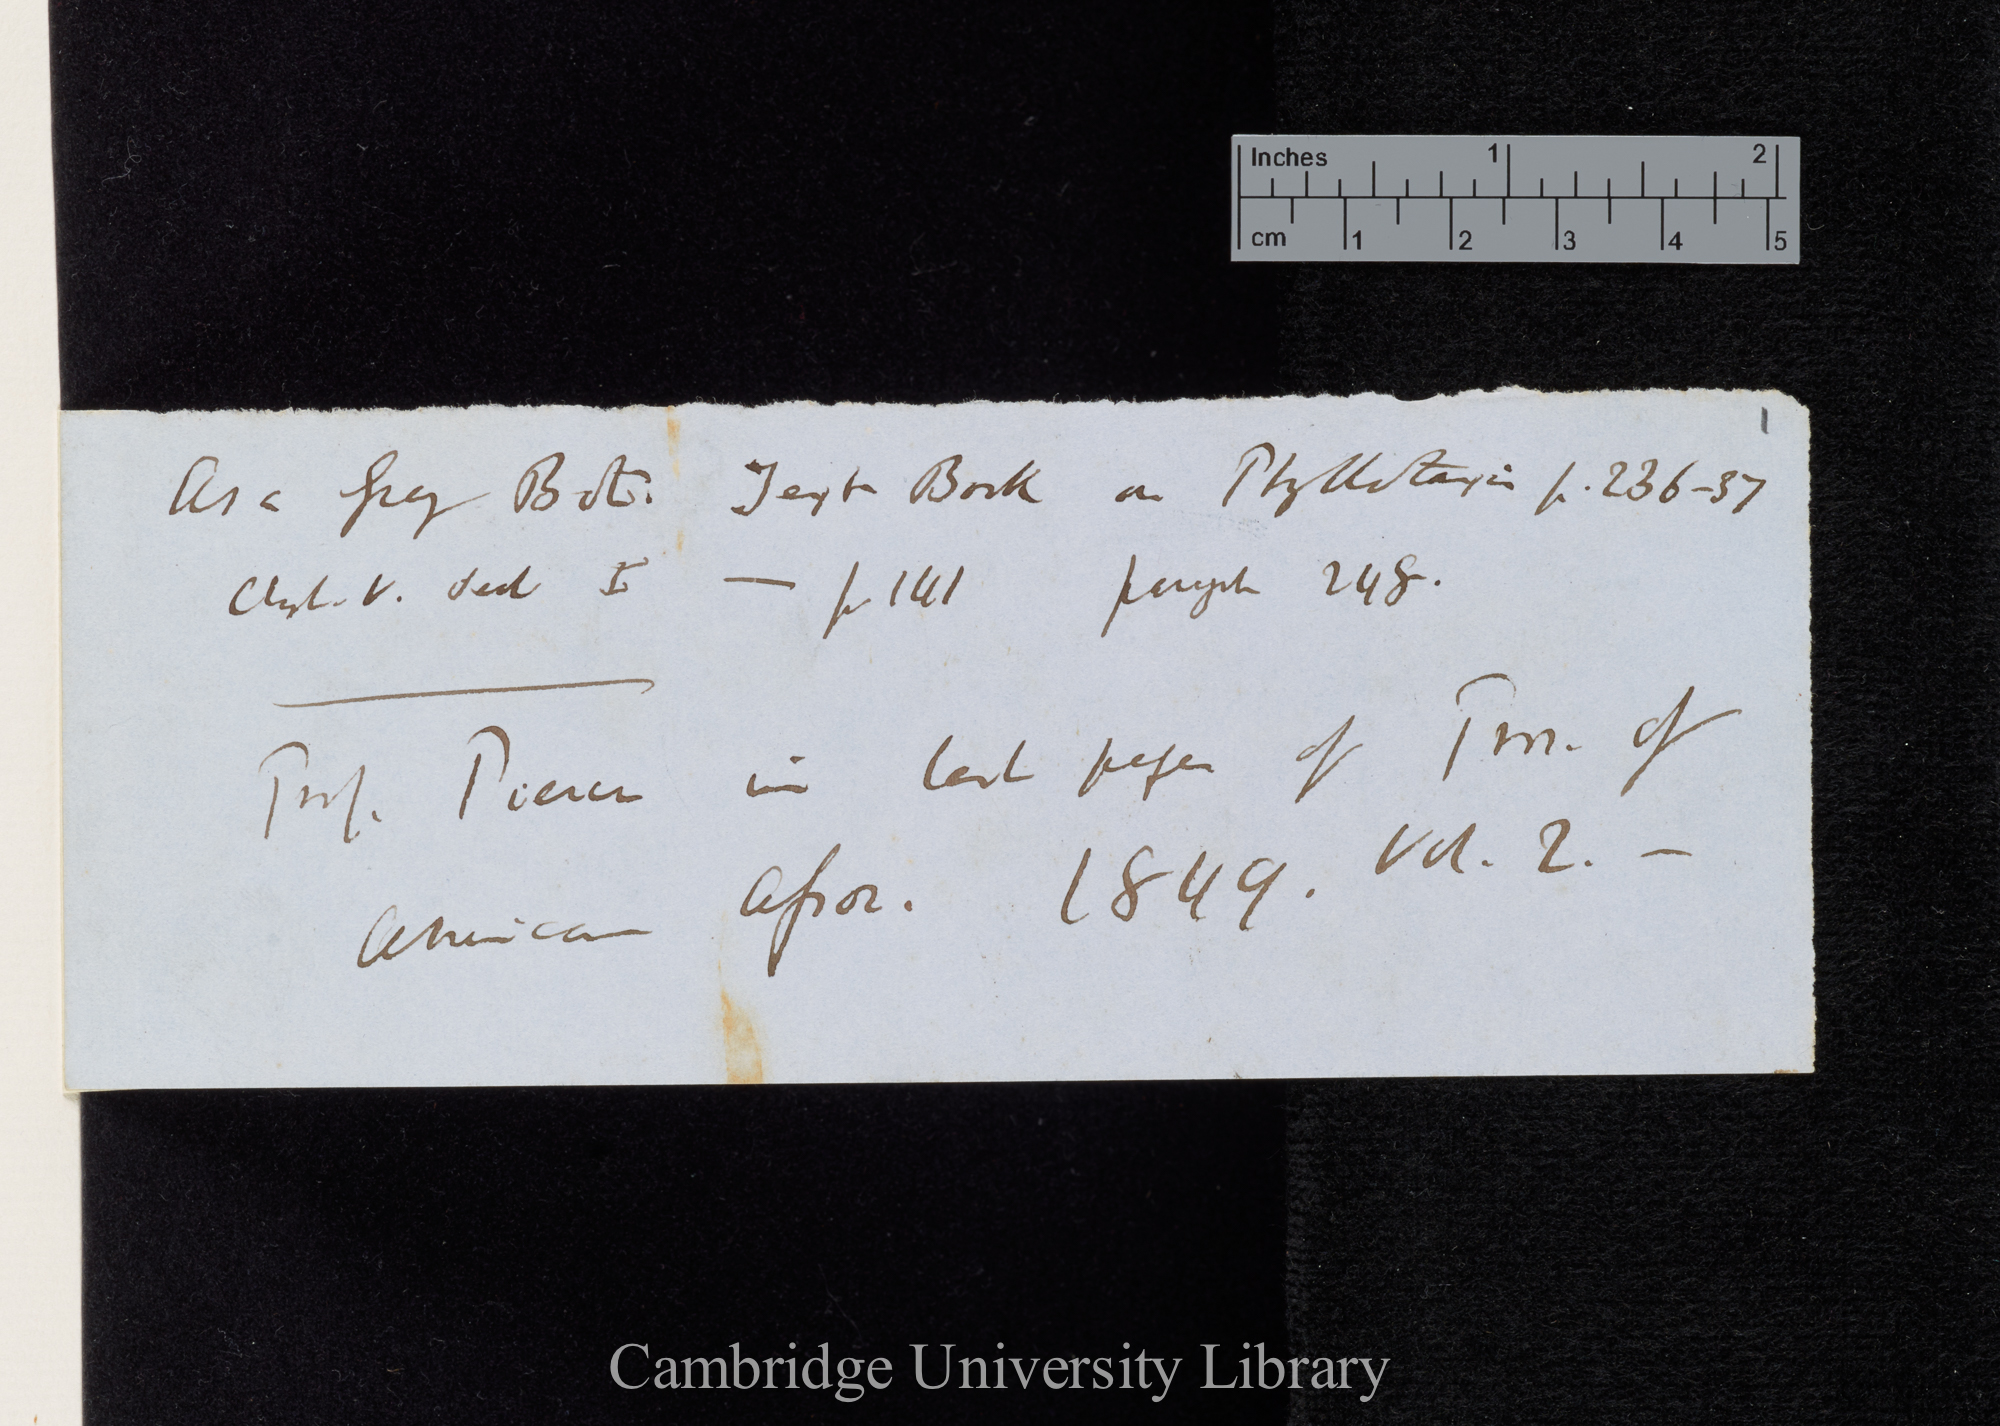 Inches 1 2
cm 1 2 3 4 5
1
Asa Gray Bot. Text Book on Phyllotaxis p. 236-37
Chapt. V. Sect I — p 141 paragraph 248.
Prof. Pierce in last pages of Proc. of
American Assoc. 1849. Vol. 2. —
Cambridge University Library